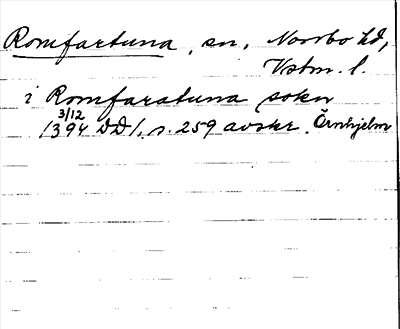 Romfartuna, sn, Norrbo hd,
Vstm. l.
i Romfaratuna sokn
3/12
1394 DD 1. s. 259 avskr. Örnhjelm